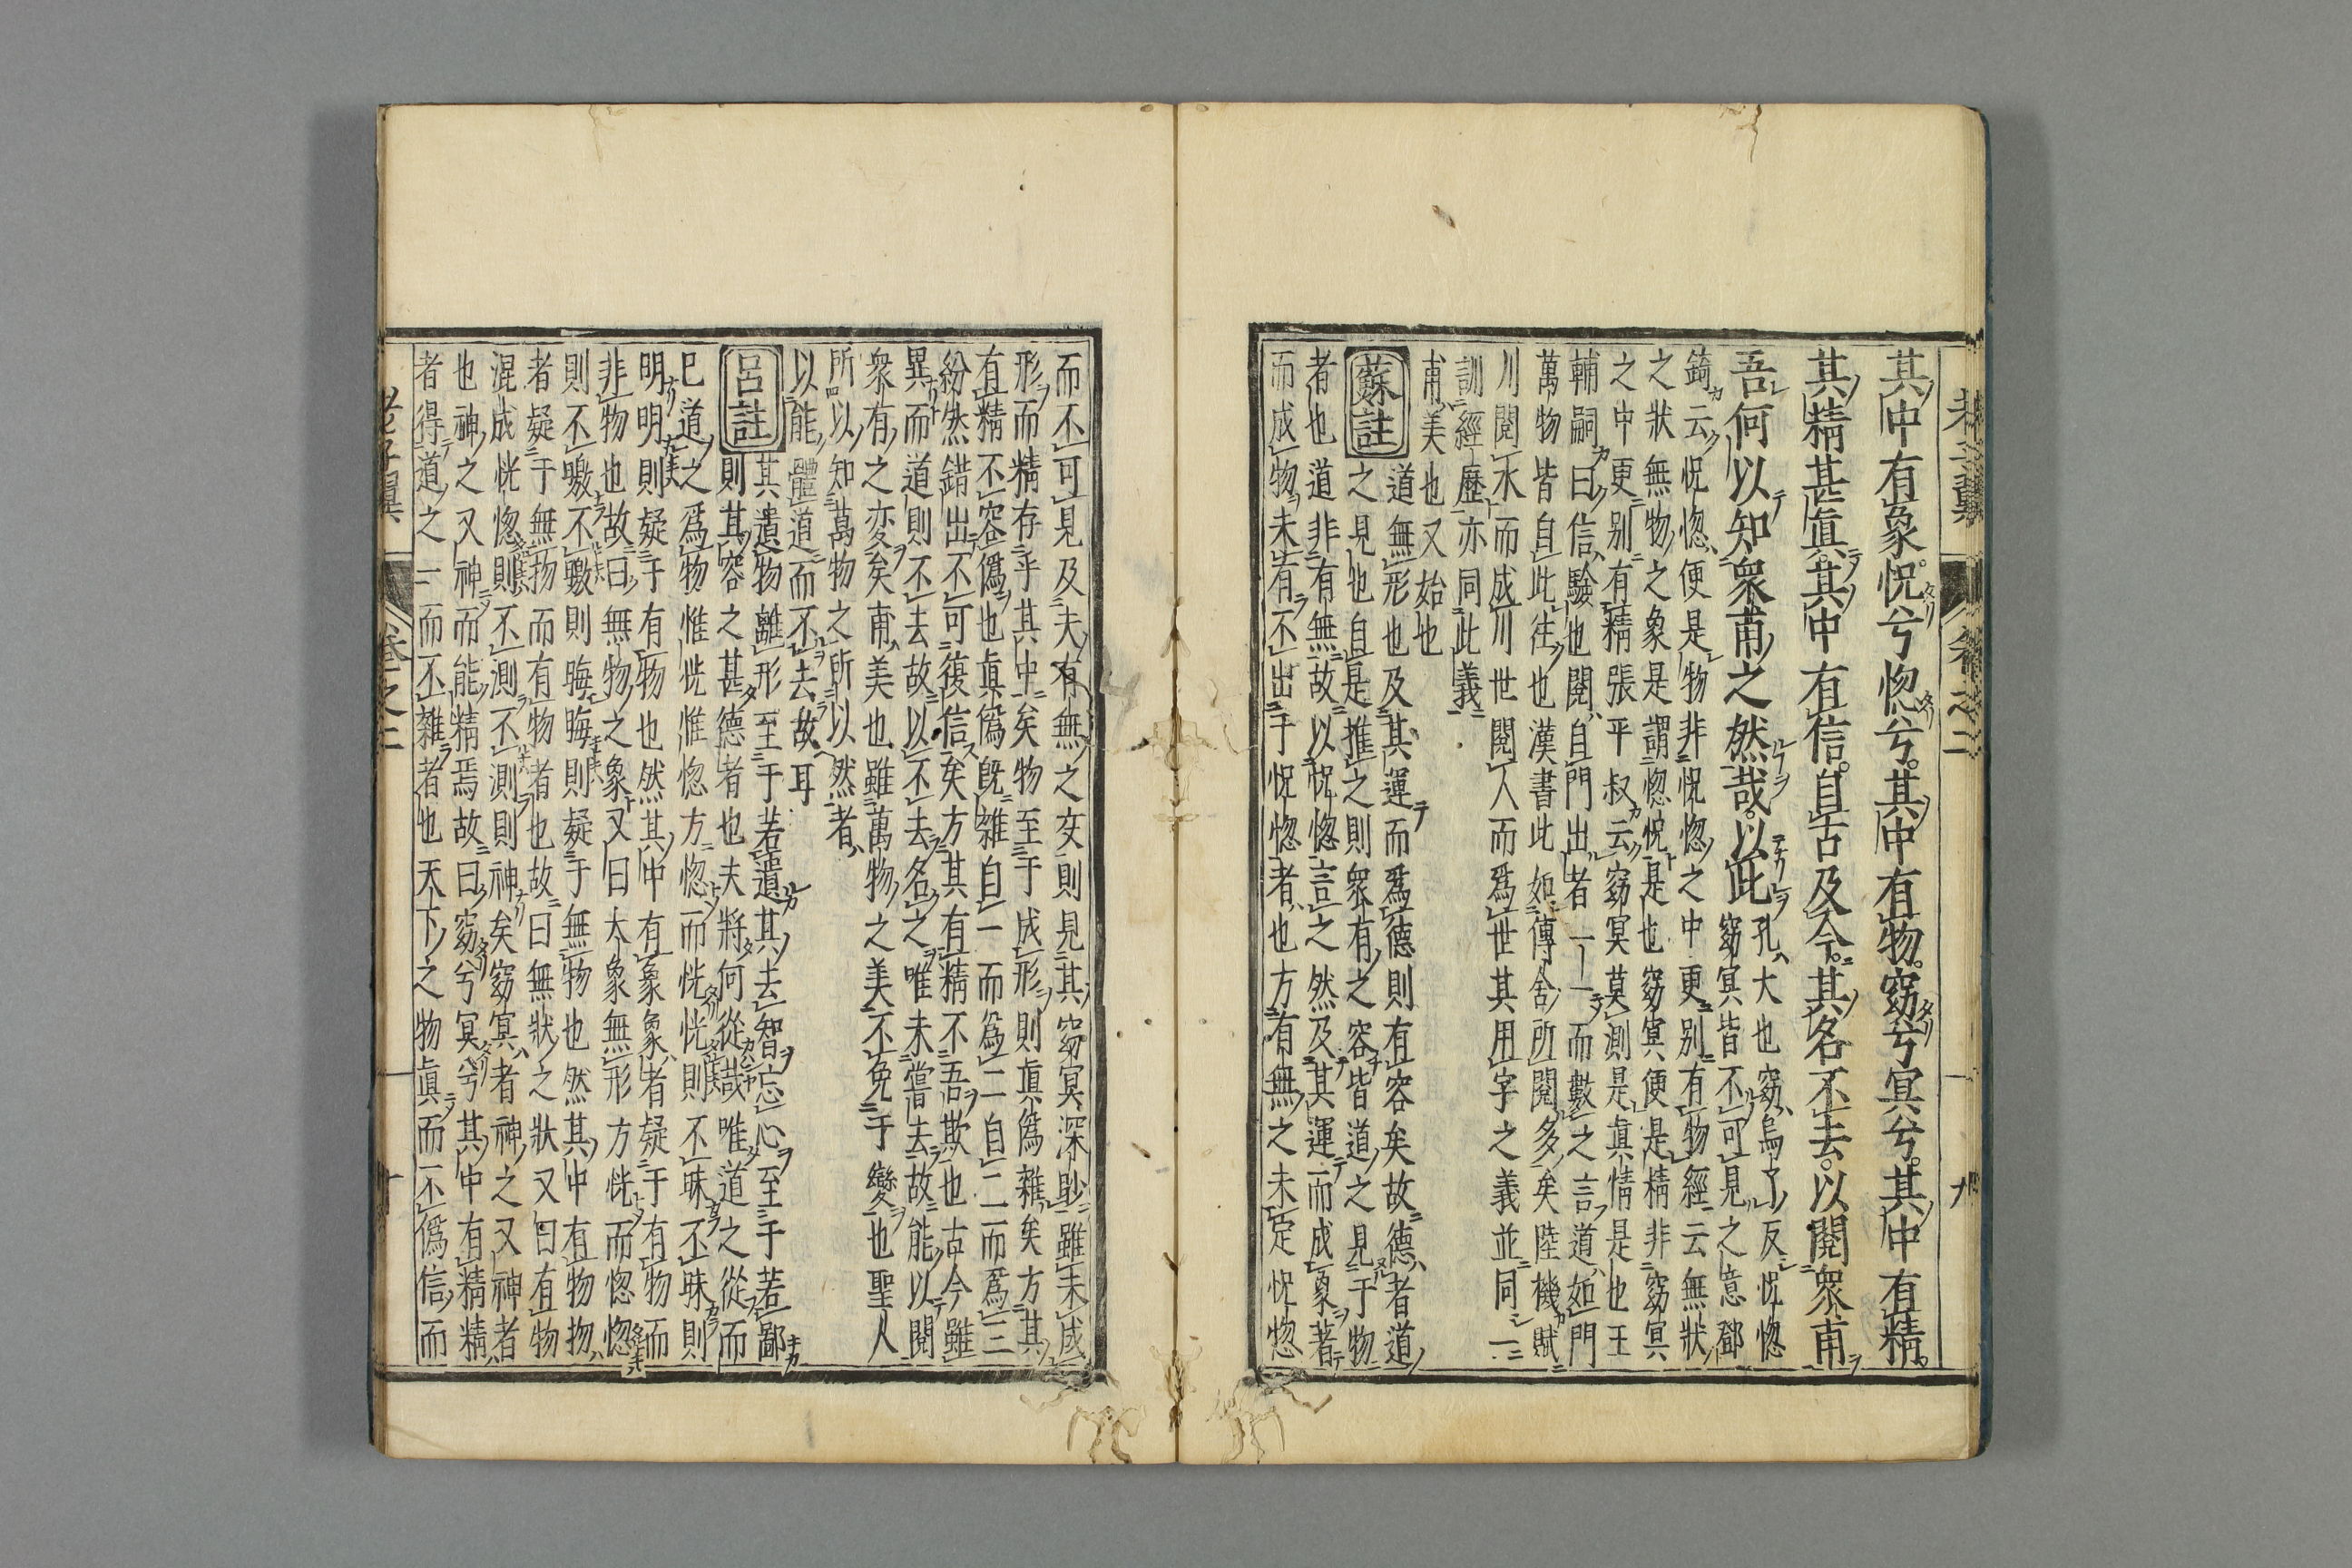 老子翼 卷之二 九
其中有象怳兮惚兮其中有物窈兮冥兮其中有精
其精甚眞其中有信自古及今其名不去以閱衆甫
吾何以知衆甫之然哉以此
孔大也窈烏了反怳惚
窈冥皆不可見之意鄧
錡云怳惚便是物非怳惚之中更別有物經云無狀
之狀無物之象是謂惚怳是也窈冥便是精非窈冥
之中更別有精張平叔云窈冥莫測是眞情是也王
輔嗣曰信驗也閱自門出者一一而數之言道如門
萬物皆自此往也漢書此如傳舍所閱多矣陸機賦
川閱水而成川世閱人而爲世其用字之義並同一
訓經歷亦同此義
甫美也又始也
蘇註
道無形也及其運而爲德則有容矣故德者道
之見也自是推之則衆有之容皆道之見于物
者也道非有無故以怳惚言之然及其運而成象著
而成物未有不出于怳惚者也方有無之未定怳惚
而不可見及夫有無之交則見其窈冥深眇雖未成
形而精存乎其中矣物至于成形則眞僞雜矣方其
有精不容僞也眞僞旣雜自一而爲二自二而爲三
紛然錯出不可復信矣方其有精不吾欺也古今雖
異而道則不去故以不去名之唯未嘗去故能以閱
衆有之変矣甫美也雖萬物之美不免于變也聖人
所以知萬物之所以然者
以能體道而不去故耳
呂註
其遺物離形至于若遺其去智忘心至于若鄙
則其容之甚德者也夫將何從哉唯道之從而
巳道之爲物惟恍惟惚方惚而恍恍則不昧不昧則
明明則疑于有物也然其中有象象者疑于有物而
非物也故曰無物之象又曰大象無形方恍而惚惚
則不曒不曒則晦晦則疑于無物也然其中有物物
者疑于無物而有物者也故曰無狀之狀又曰有物
混成恍惚則不測不測則神矣窈冥者神之又神者
也神之又神而能精焉故曰窈兮冥兮其中有精精
者得道之一而不雜者也天下之物眞而不僞信而
老子翼 卷之二 十